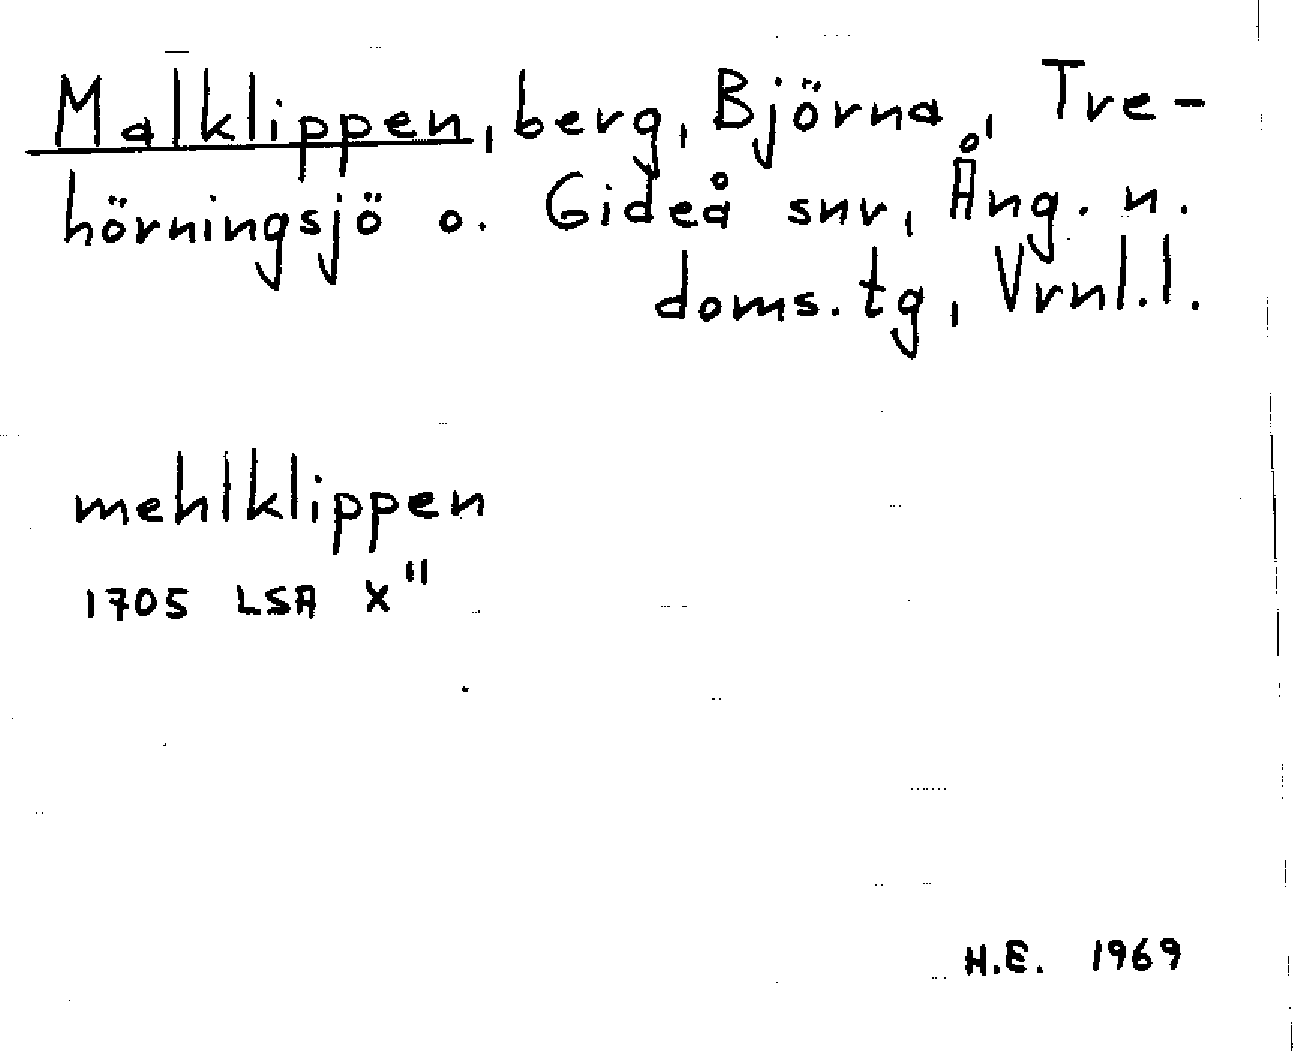 Malklippen, berg, Björna, Tre-
hörningsjö o. Gideå snr, Ång. n.
doms. tg, Vrnl.l.
mehlklippen
1705 LSA X"
H.E. 1969